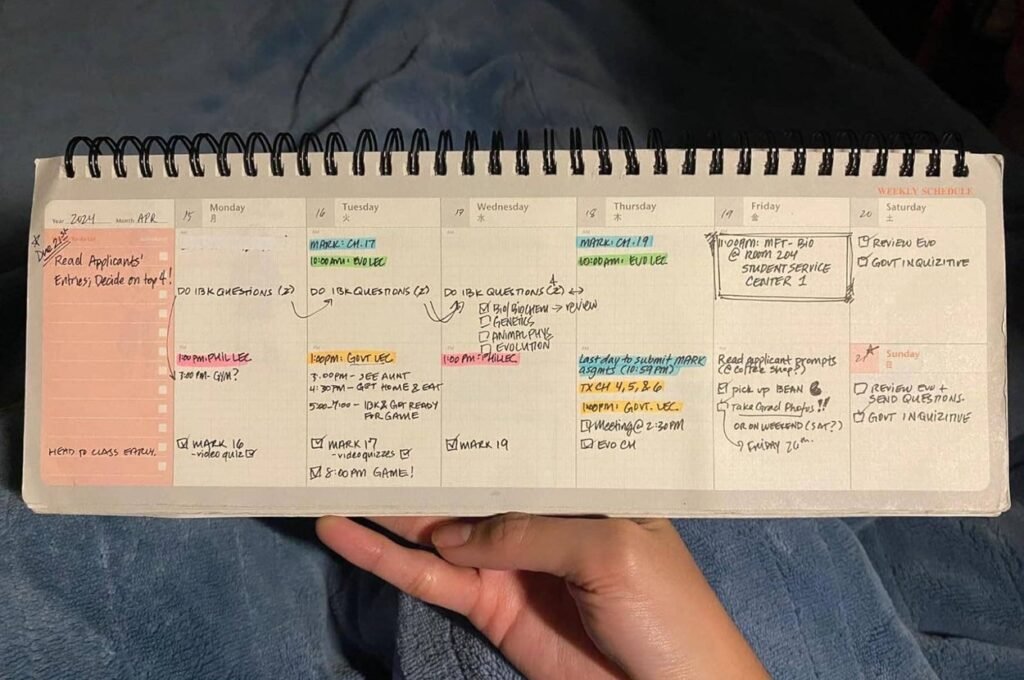 WEEKLY SCHEDULE
Year 2024 Month APR
* Due 21st
Read Applicants'
Entries; Decide on top 4!
HEAD TO CLASS EARLY.
15 Monday
月
DO IBK QUESTIONS (2)
1:00 PM: PHIL LEC
7:00 PM- GYM?
MARK 16
-video quiz
16 Tuesday
火
MARK: CH. 17
10:00 AM: EVO LEC
DO IBK QUESTIONS (2)
1:00PM: GOVT LEC
3:00PM- SEE AUNT
4:30PM- GET HOME & EAT
5:00-7:00- IBK & GET READY
FOR GAME
MARK 17
-video quizzes
8:00 PM GAME!
17 Wednesday
水
DO IBK QUESTIONS (2) 4
BIO/BIOCHEM → REVIEW
GENETICS
ANIMAL PHYS
EVOLUTION
1:00 PM: PHIL LEC
MARK 19
18 Thursday
木
MARK: CH. 19
10:00AM: EVO LEC
Last day to submit MARK
asgmts (10:59PM)
TX CH 4, 5, & 6
1:00PM: GOVT. LEC.
Meeting @ 2:30PM
EVO CH
19 Friday
金
11:00AM: MFT-BIO
@ ROOM 204
STUDENT SERVICE
CENTER 1
Read applicant prompts
(@ Coffee Shop?)
pick up BEAN
Take Grad Photos!!
OR ON WEEKEND (SAT?)
→ FRIDAY 26th.
20 Saturday
土
REVIEW EVO
GOVT INQUIZITIVE
21 Sunday
日
REVIEW EVO +
SEND QUESTIONS.
GOVT INQUIZITIVE